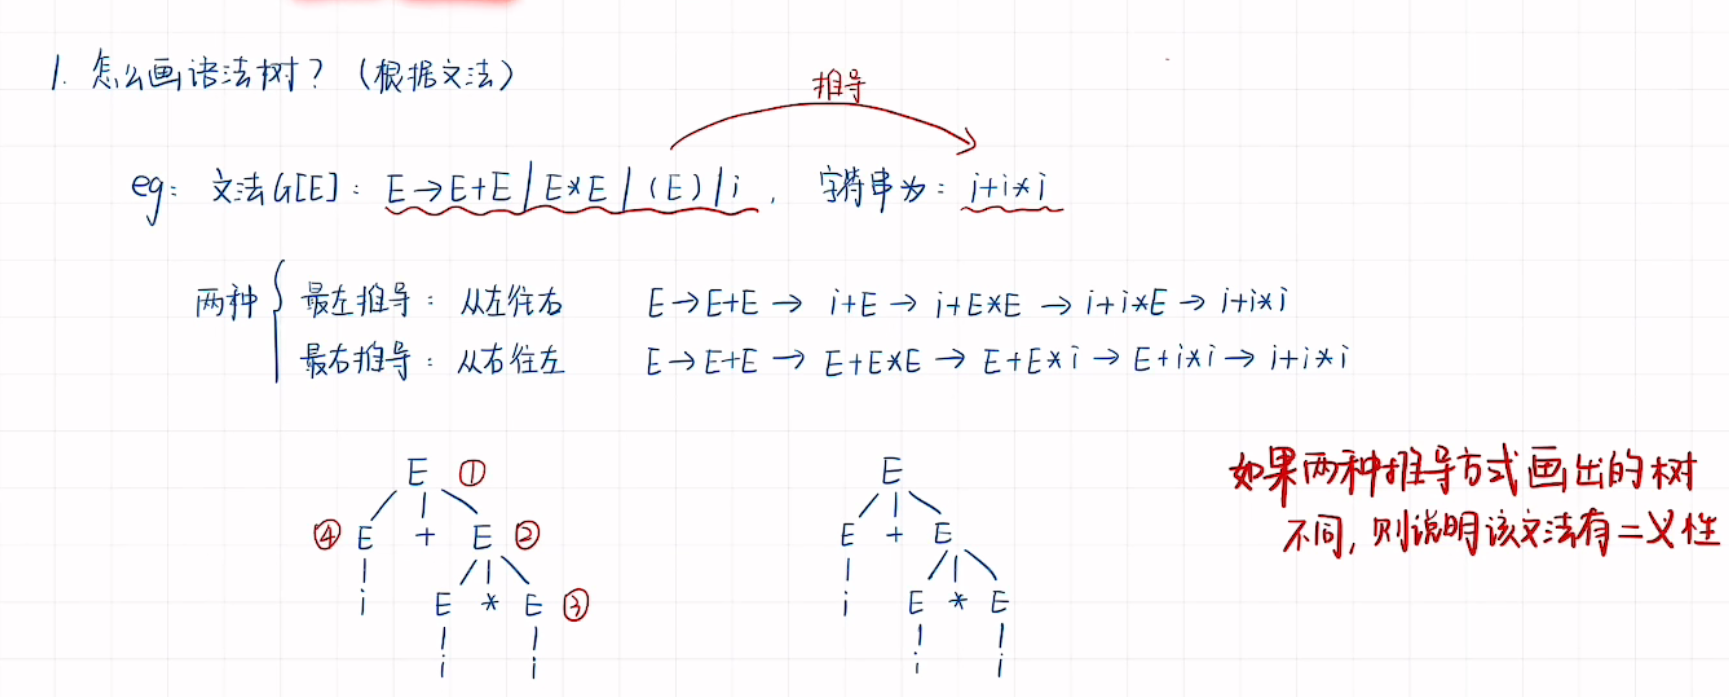 1. 怎么画语法树？（根据文法）
推导
eg: 文法G[E]: E→E+E | E*E | (E) | i, 字符串为: i+i*i
两种
最左推导: 从左往右 E→E+E→ i+E→ i+E*E→ i+i*E→ i+i*i
最右推导: 从右往左 E→E+E→ E+E*E→ E+E*i→ E+i*i→ i+i*i
如果两种推导方式画出的树
不同, 则说明该文法有二义性
E ① E
④ E + E ② E + E
i E * E ③ i E * E
i i i i